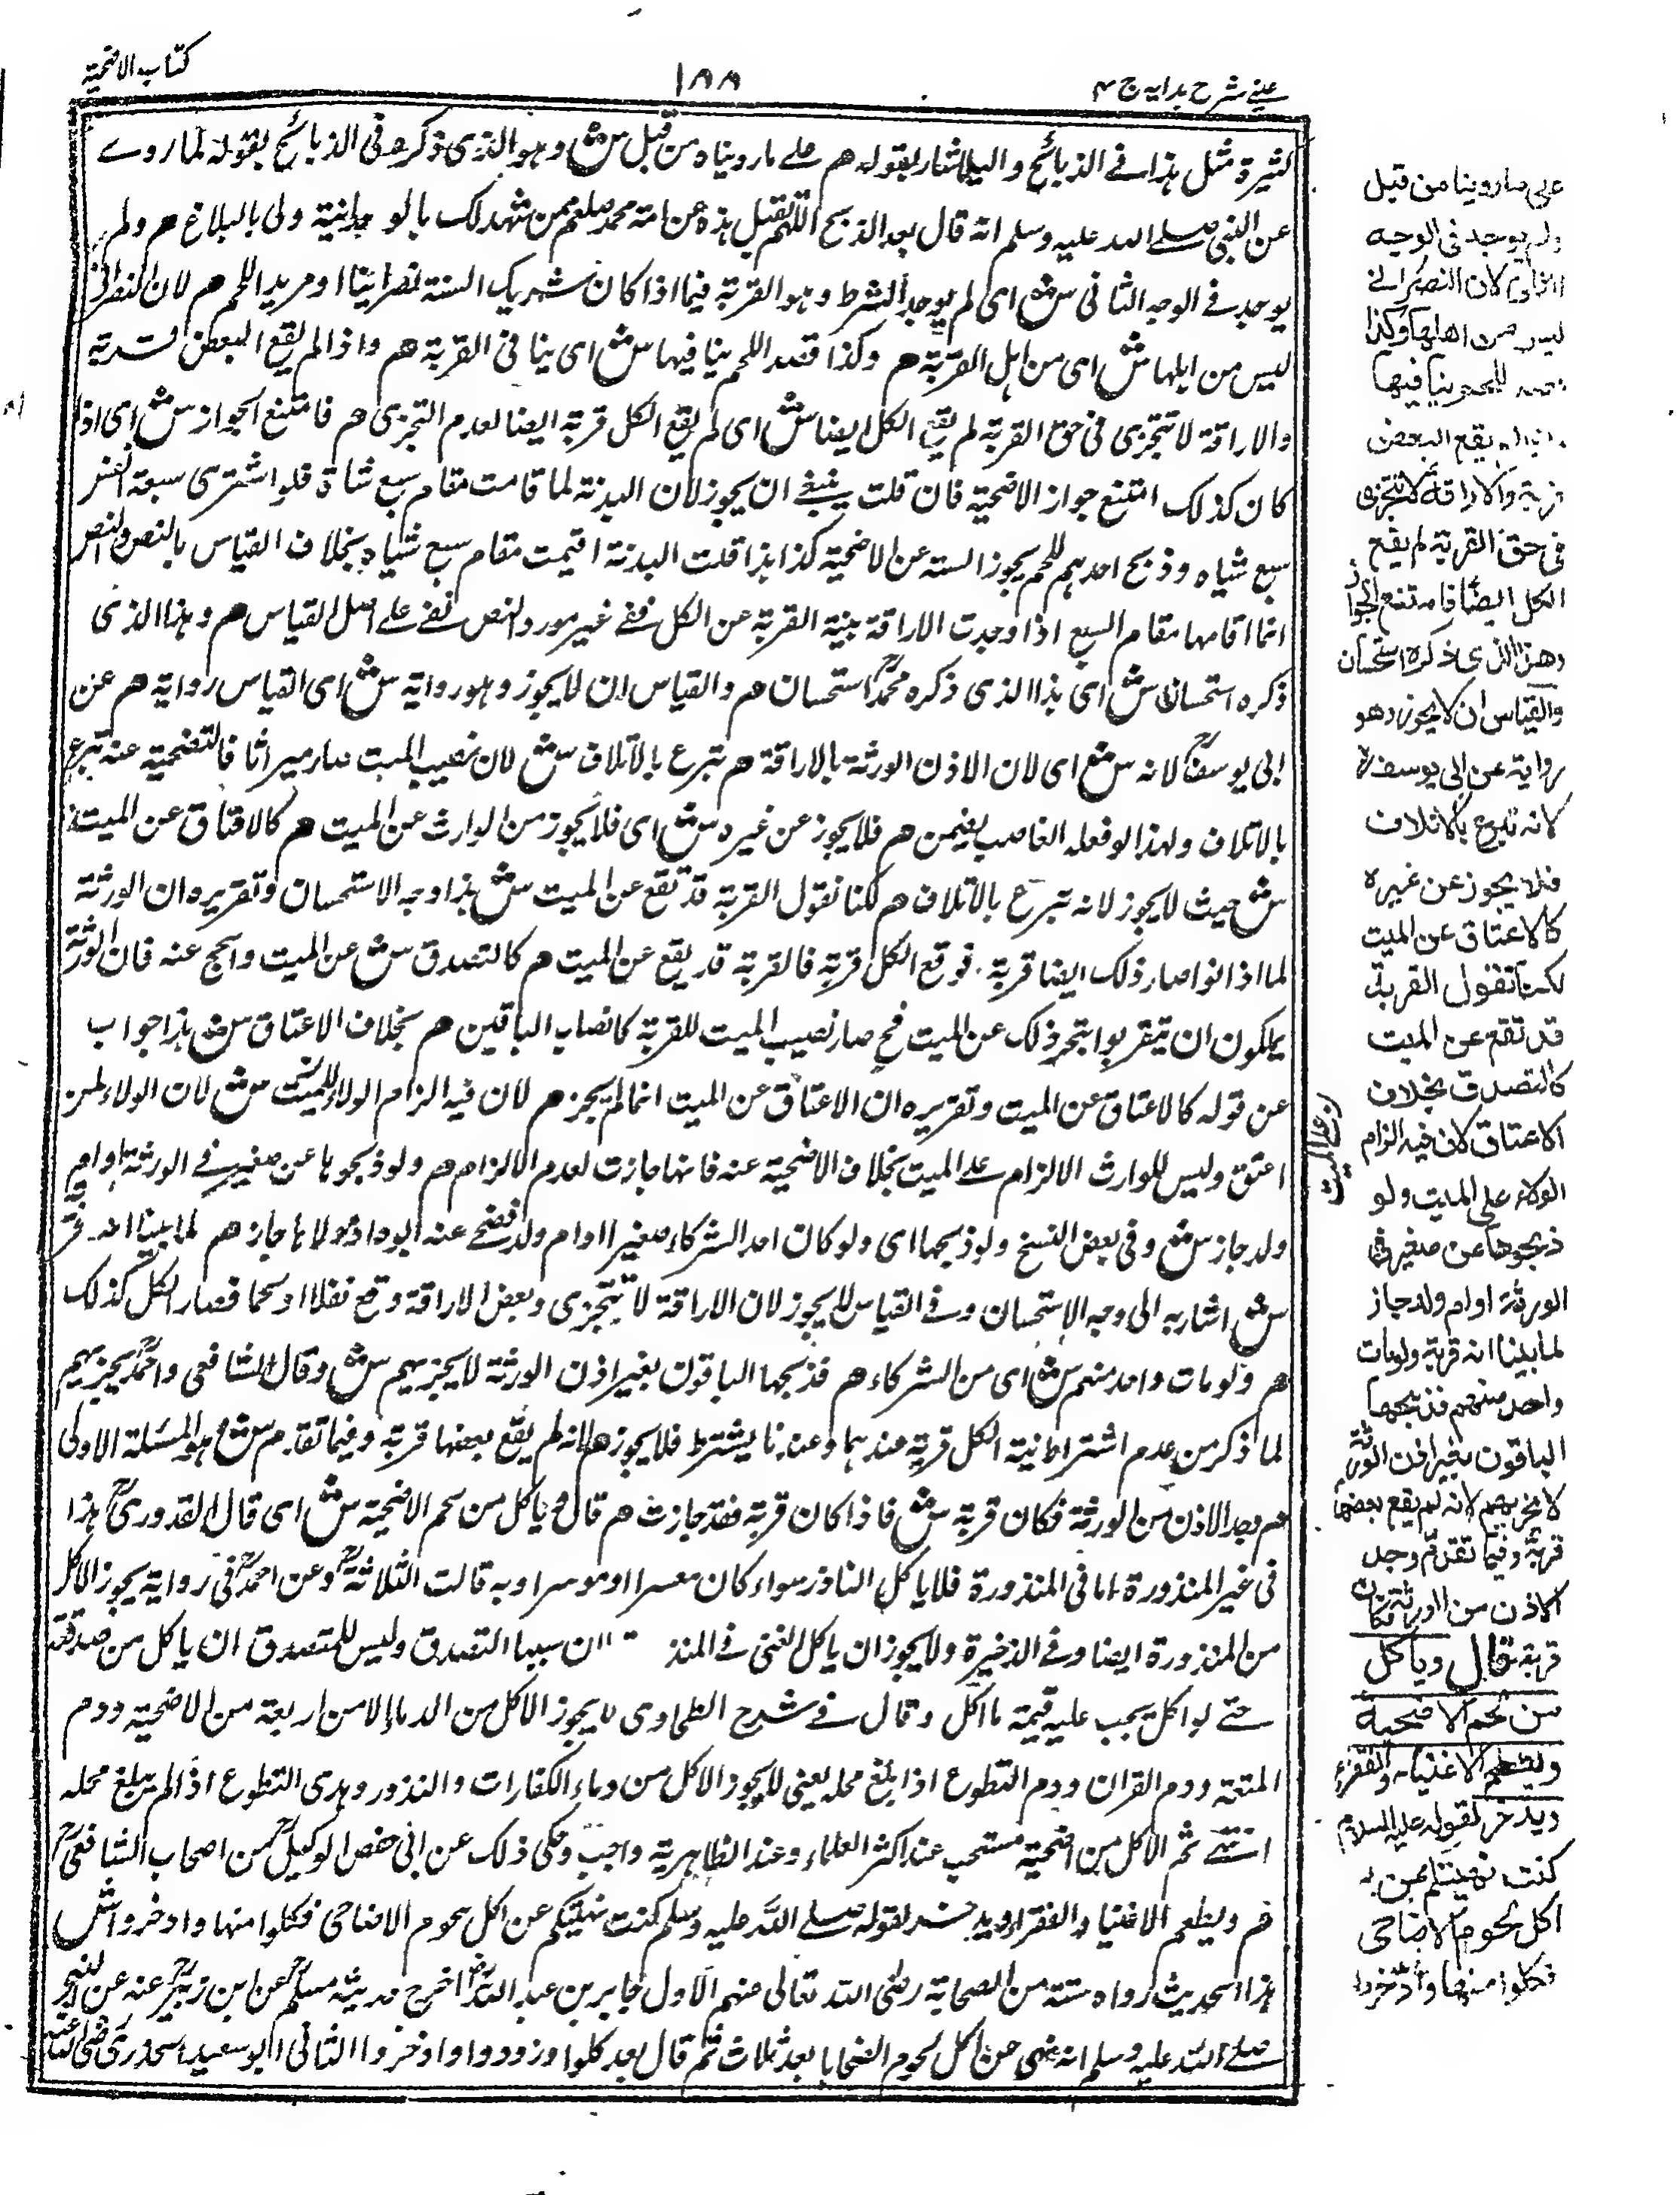 عینے شرح ہدایہ ج ۴
۱۸۸
کتاب الاضحیۃ
کثیرۃ مثل ہذا فے الذبائح والیہ اشار بقولہ ھم علے ما رویناہ من قبل ش وہو الذی ذکرہ فی الذبائح بقولہ لما روے
عن النبی صلے اللہ علیہ وسلم انہ قال بعد الذبح اللہم تقبل ہذہ عن امۃ محمد صلعم ممن شہد لک بالوحدانیۃ ولی بالبلاغ ھم ولم
یوجد فے الوجہ الثانی ش ای لم یوجد الشرط وہو القربۃ فیما اذا کان شریک الستۃ نصرانیا او مرید اللحم ھم لان النصرانی
لیس من اہلہا ش ای من اہل القربۃ ھم وکذا قصد اللحم ینافیہا ش ای ینافی القربۃ ھم واذا لم یقع البعض قربۃ
والاراقۃ لا تتجزی فی حق القربۃ لم یقع الکل ایضا ش ای لم یقع الکل قربۃ ایضا لعدم التجزی ھم فامتنع الجواز ش ای اذا
کان کذلک امتنع جواز الاضحیۃ فان قلت ینبغے ان یجوز لان البدنۃ لما قامت مقام سبع شاۃ فلو اشتری سبعۃ نفر
سبع شیاہ وذبح احدہم للحم یجوز الستۃ عن الاضحیۃ کذا ہذا قلت البدنۃ اقیمت مقام سبع شیاہ بخلاف القیاس بالنص والنص
انما اقامہا مقام السبع اذا وجدت الاراقۃ بنیۃ القربۃ عن الکل ففے غیر مورد النص نفے علے اصل القیاس ھم وہذا الذی
ذکرہ استحسان ش ای ہذا الذی ذکرہ محمدؒ استحسان ھم والقیاس ان لا یجوز وہو روایۃ ش ای القیاس روایۃ ھم عن
ابی یوسفؒ لانہ ش ای لان الاذن الورثۃ بالاراقۃ ھم تبرع بالاتلاف ش لان نصیب المیت صار میراثا فالتضحیۃ عنہ تبرع
بالاتلاف ولہذا لو فعلہ الغاصب یضمن ھم فلا یجوز عن غیرہ ش ای فلا یجوز من الوارث عن المیت ھم کالاعتاق عن المیت
ش حیث لا یجوز لانہ تبرع بالاتلاف ھم لکنا نقول القربۃ قد تقع عن المیت ش ہذا وجہ الاستحسان وتقریرہ ان الورثۃ
لما اذنوا صار ذلک ایضا قربۃ فوقع الکل قربۃ فالقربۃ قد یقع عن المیت ھم کالتصدق ش عن المیت والحج عنہ فان الورثۃ
یملکون ان یتقربوا بنحو ذلک عن المیت فح صار نصیب المیت للقربۃ کانصاب الباقین ھم بخلاف الاعتاق ش ہذا جواب
عن قولہ کالاعتاق عن المیت وتقریرہ ان الاعتاق عن المیت انما لم یجز ھم لان فیہ الزام الولاء للمیت ش لان الولاء لمن
اعتق ولیس للوارث الالزام علے المیت بخلاف الاضحیۃ عنہ فانہا جازت لعدم الالزام ھم ولو ذبحوہا عن صغیر فے الورثۃ او ام
ولد جاز ش وفی بعض النسخ ولو ذبحہا ای ولو کان احد الشرکاء صغیرا او ام ولد فضحے عنہ ابوہ او مولاہا جاز ھم لما بینا انہ قربۃ
ش اشار بہ الی وجہ الاستحسان وفے القیاس لا یجوز لان الاراقۃ لا تتجزی وبعض الاراقۃ وقع نفلا او لحما فصار الکل کذلک
ھم ولو مات واحد منہم ش ای من الشرکاء ھم فذبحہا الباقون بغیر اذن الورثۃ لا یجزیہم ش وقال الشافعی واحمدؒ یجزیہم
لما ذکر من عدم اشتراط نیۃ الکل قربۃ عندہما وعندنا یشترط فلا یجوز ھم لانہ لم یقع بعضہا قربۃ وفیما تقدم ش وہو المسئلۃ الاولی
ھم وجد الاذن من الورثۃ فکان قربۃ ش فاذا کان قربۃ فقد جازت ھم قال ویاکل من لحم الاضحیۃ ش ای قال القدوریؒ ہذا
فی غیر المنذورۃ اما فی المنذورۃ فلا یاکل الناذر سواء کان معسرا او موسرا وبہ قالت الثلاثۃؒ وعن احمدؒ فی روایۃ یجوز الاکل
من المنذورۃ ایضا وفے الذخیرۃ ولا یجوز ان یاکل الغنی فے المنذ ان سبیہا التصدق ولیس للمتصدق ان یاکل من صدقتہ
حتے لو اکل یجب علیہ قیمۃ ما اکل وقال فے شرح الطحاوی لا یجوز الاکل من الدماء الا من اربعۃ من الاضحیۃ ودم
المتعۃ ودم القران ودم التطوع اذا بلغ محلہ یعنی لا یجوز الاکل من دماء الکفارات والنذور وہدی التطوع اذا لم یبلغ محلہ
انتہے ثم الاکل من اضحیۃ مستحب عند اکثر العلماء وعند الظاہریۃ واجب وحکی ذلک عن ابی حفص الوکیلؒ من اصحاب الشافعیؒ
ھم ویطعم الاغنیاء والفقراء ویدخر لقولہ صلے اللہ علیہ وسلم کنت نہیتکم عن اکل لحوم الاضاحی فکلوا منہا وادخروا ش
ہذا الحدیث رواہ ستۃ من الصحابۃ رضی اللہ تعالی عنہم الاول جابر بن عبد اللہؓ اخرج حدیثہ مسلمؒ عن ابن زبیرؒ عنہ عن النبی
صلے اللہ علیہ وسلم انہ نہی عن اکل لحوم الضحایا بعد ثلاث ثم قال بعد کلوا وزودوا وادخروا الثانی ابو سعید الخدری رضی اللہ عنہ
علی ما روینا من قبل
ولم یوجد فی الوجہ
الثانی لان النصرانے
لیس من اھلہا وکذا
قصد اللحم ینافیہا
واذا لم یقع البعض
قربۃ والاراقۃ لا تتجزی
فی حق القربۃ لم یقع
الکل ایضا فامتنع الجواز
وھذا الذی ذکرہ استحسان
والقیاس ان لا یجوز وھو
روایۃ عن ابی یوسفؒ
لانہ تبرع بالاتلاف
فلا یجوز عن غیرہ
کالاعتاق عن المیت
لکنا نقول القربۃ
قد تقع عن المیت
کالتصدق بخلاف
الاعتاق لان فیہ الزام
الولاء علی المیت ولو
ذبحوھا عن صغیر فی
الورثۃ او ام ولد جاز
لما بینا انہ قربۃ ولو مات
واحد منھم فذبحھا
الباقون بغیر اذن الورثۃ
لا یجزیھم لانہ لم یقع بعضھا
قربۃ وفیما تقدم وجد
الاذن من الورثۃ فکان
قربۃ قال ویاکل
من لحم الاضحیۃ
ویطعم الاغنیاء والفقراء
ویدخر لقولہ علیہ السلام
کنت نھیتکم عن
اکل لحوم الاضاحی
فکلوا منھا وادخروا